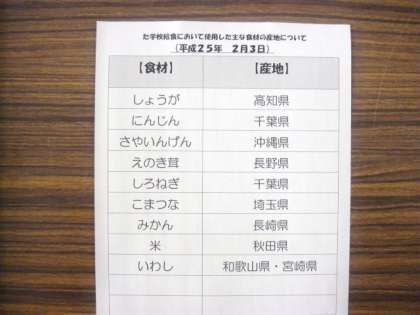 た学校給食において使用した主な食材の産地について
(平成25年 2月3日)
【食材】 【産地】
しょうが 高知県
にんじん 千葉県
さやいんげん 沖縄県
えのき茸 長野県
しろねぎ 千葉県
こまつな 埼玉県
みかん 長崎県
米 秋田県
いわし 和歌山県・宮崎県